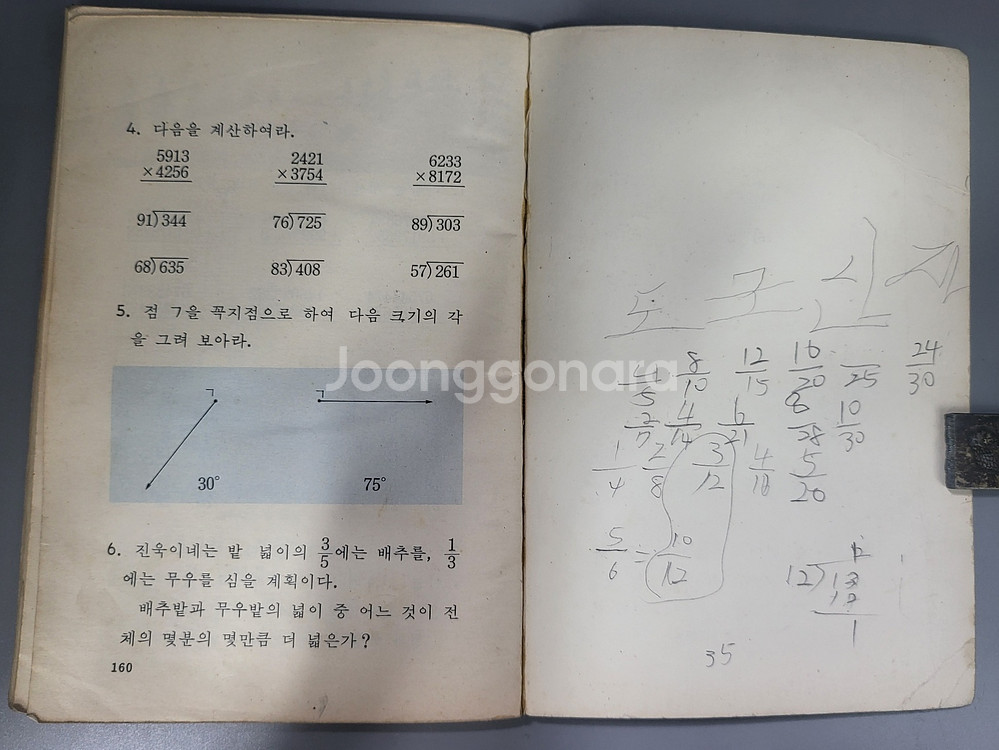 4. 다음을 계산하여라.
5913 2421 6233
×4256 ×3754 ×8172
91)344 76)725 89)303
68)635 83)408 57)261
5. 점 ㄱ을 꼭지점으로 하여 다음 크기의 각
을 그려 보아라.
ㄱ ㄱ
30° 75°
6. 진욱이네는 밭 넓이의 3/5에는 배추를, 1/3
에는 무우를 심을 계획이다.
배추밭과 무우밭의 넓이 중 어느 것이 전
체의 몇분의 몇만큼 더 넓은가?
160
Joonggonara
4/5 8/10 12/15 16/20 /25 24/30
2/7 4/14 6/21 8/28 10/30
1/4 2/8 3/12 4/16 5/20
5/6 = 10/12
12)13
12
1
35